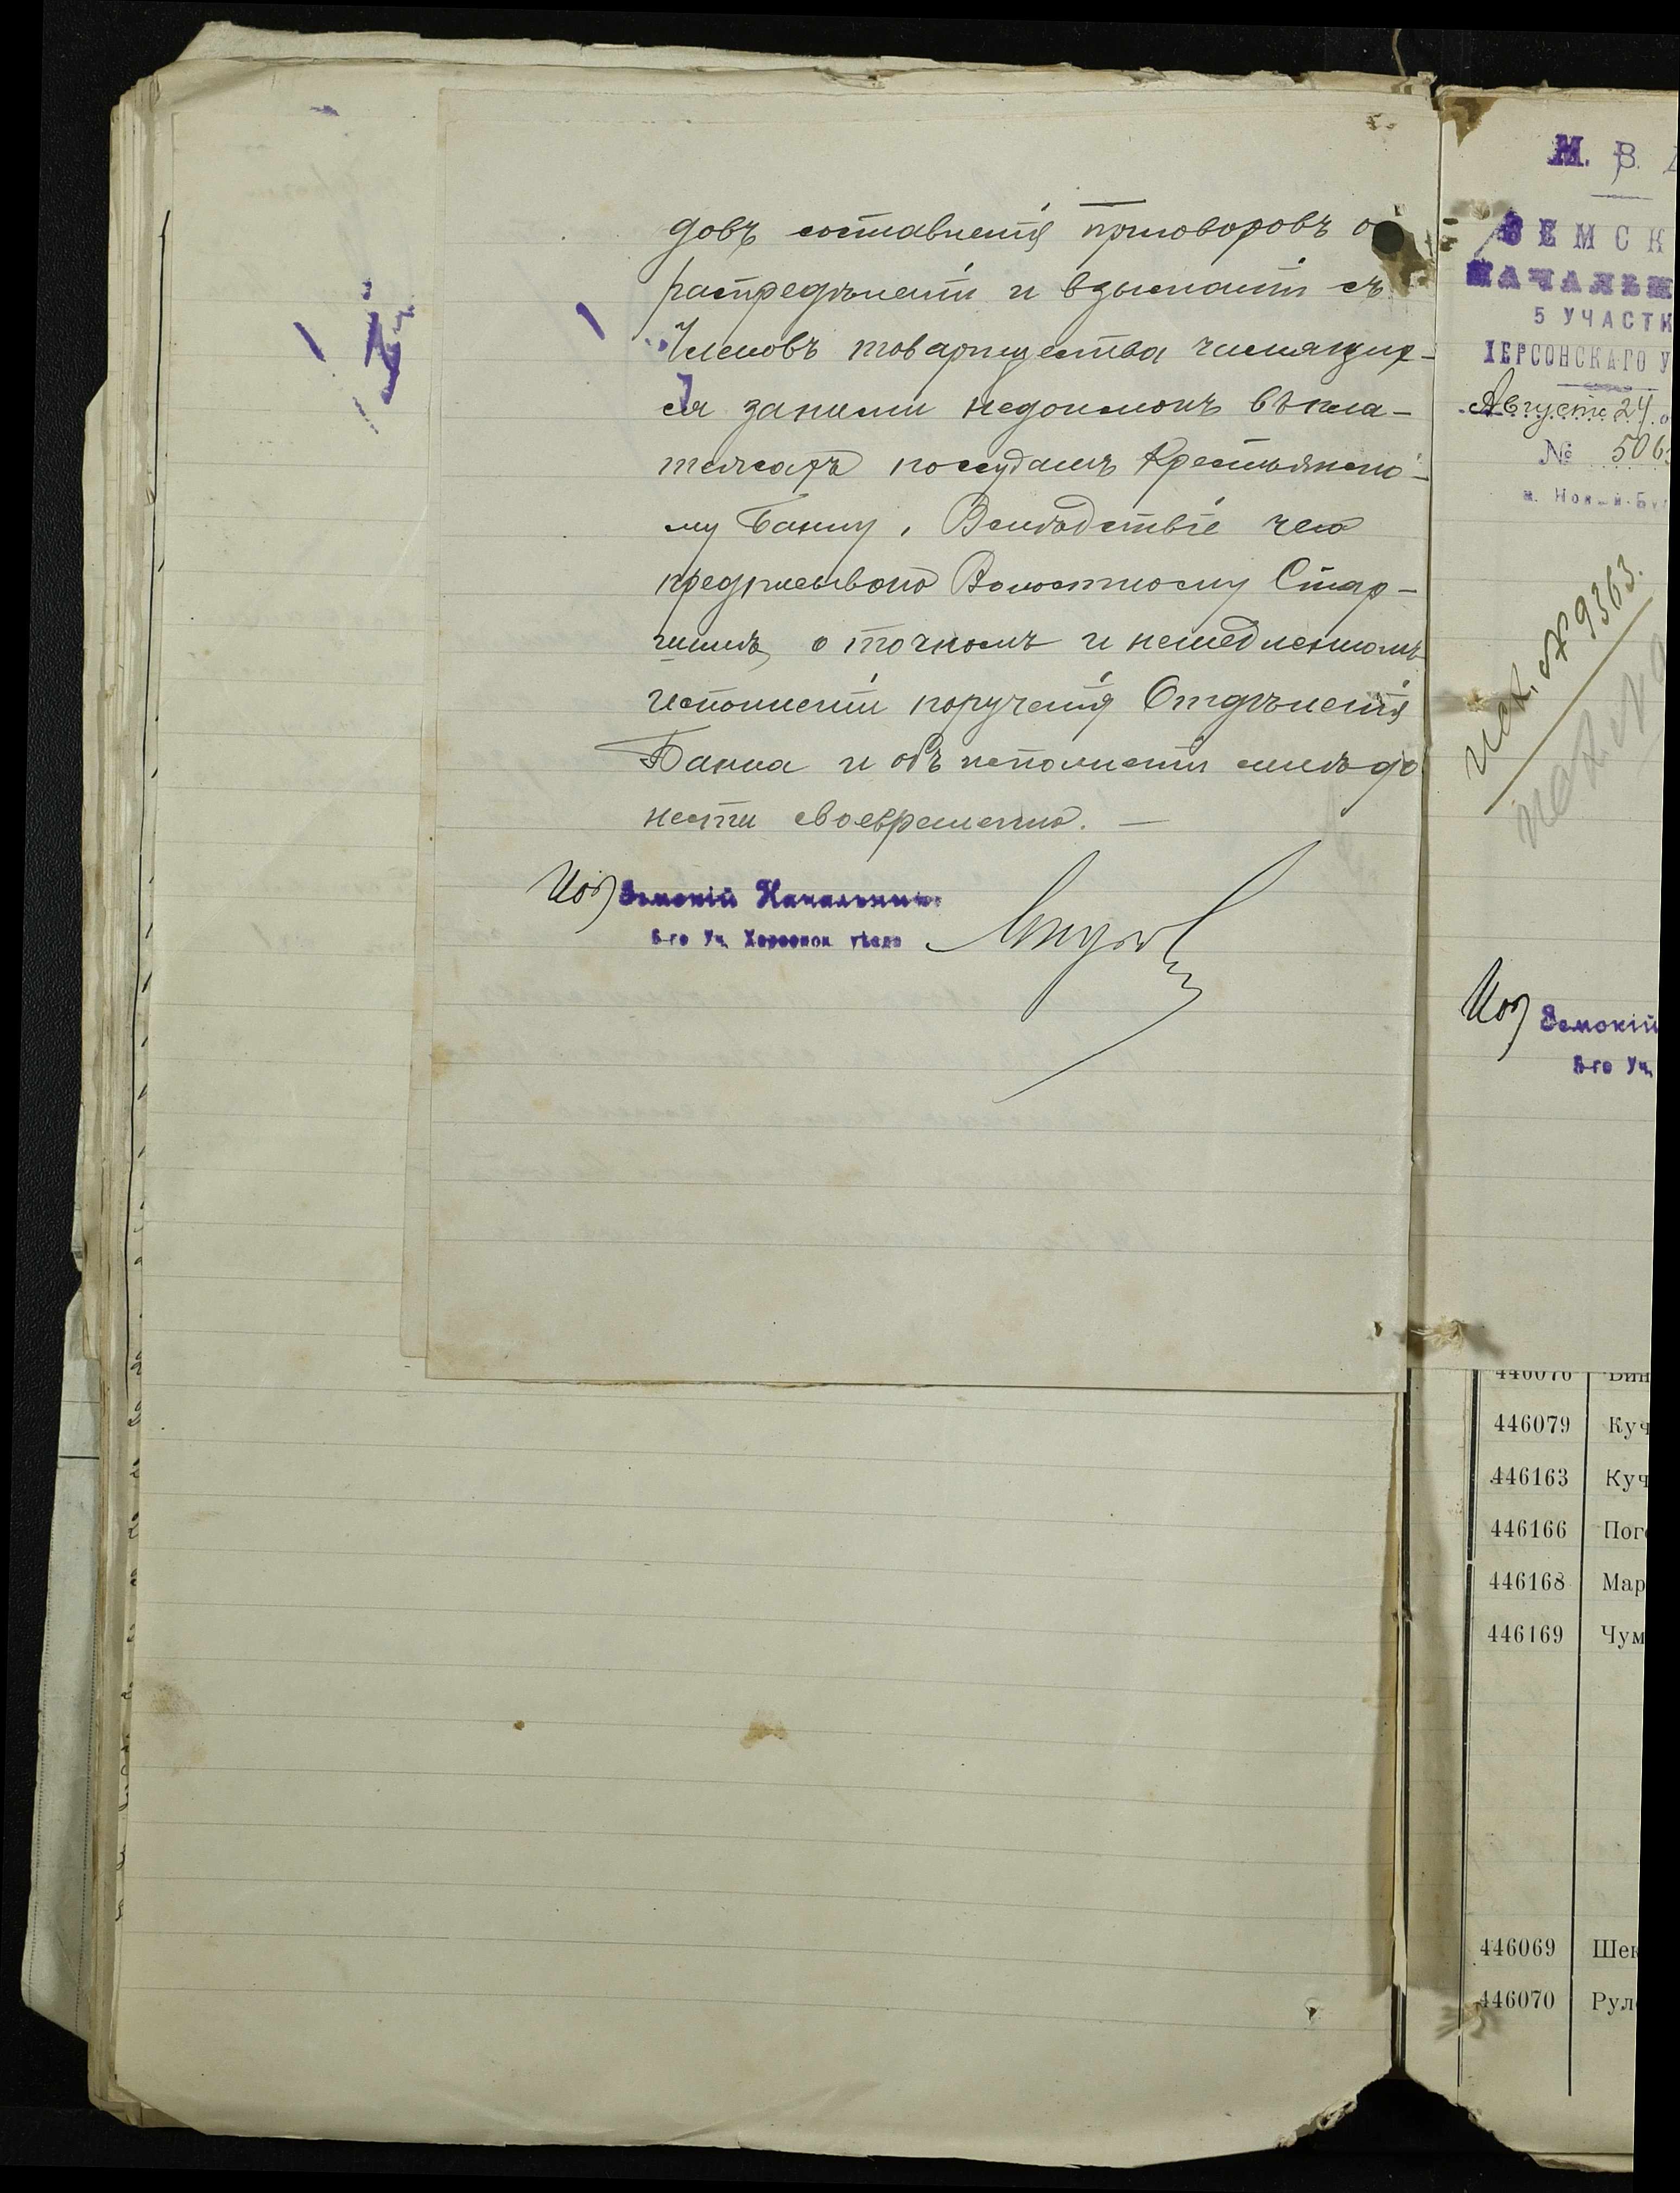 довъ составленія приговоровъ о
распредѣленіи и взысканіи съ
Членовъ товарищества числящих-
ся заними недоимокъ въ пла-
тежахъ поссудамъ Крестьянско-
му Банку, Вслѣдствіе чего
предписываю Волостному Стар-
шинѣ, о точномъ и немедленномъ
исполненіи порученія Отдѣленія
Банка и объ исполненіи мнѣ до
нести своевременно. —
Иоб Земскій Начальникъ
5-го Уч. Херсонск. уѣзда
М. В. Д
ЗЕМСК
НАЧАЛЬН
5 УЧАСТК
ХЕРСОНСКАГО У
Августа 24
№ 506
м. Новый-Буг
исх. № 9363.
Иоб Земскій
5-го Уч.
446079 Куч
446163 Куч
446166 Пог
446168 Мар
446169 Чум
446069 Шек
446070 Рул